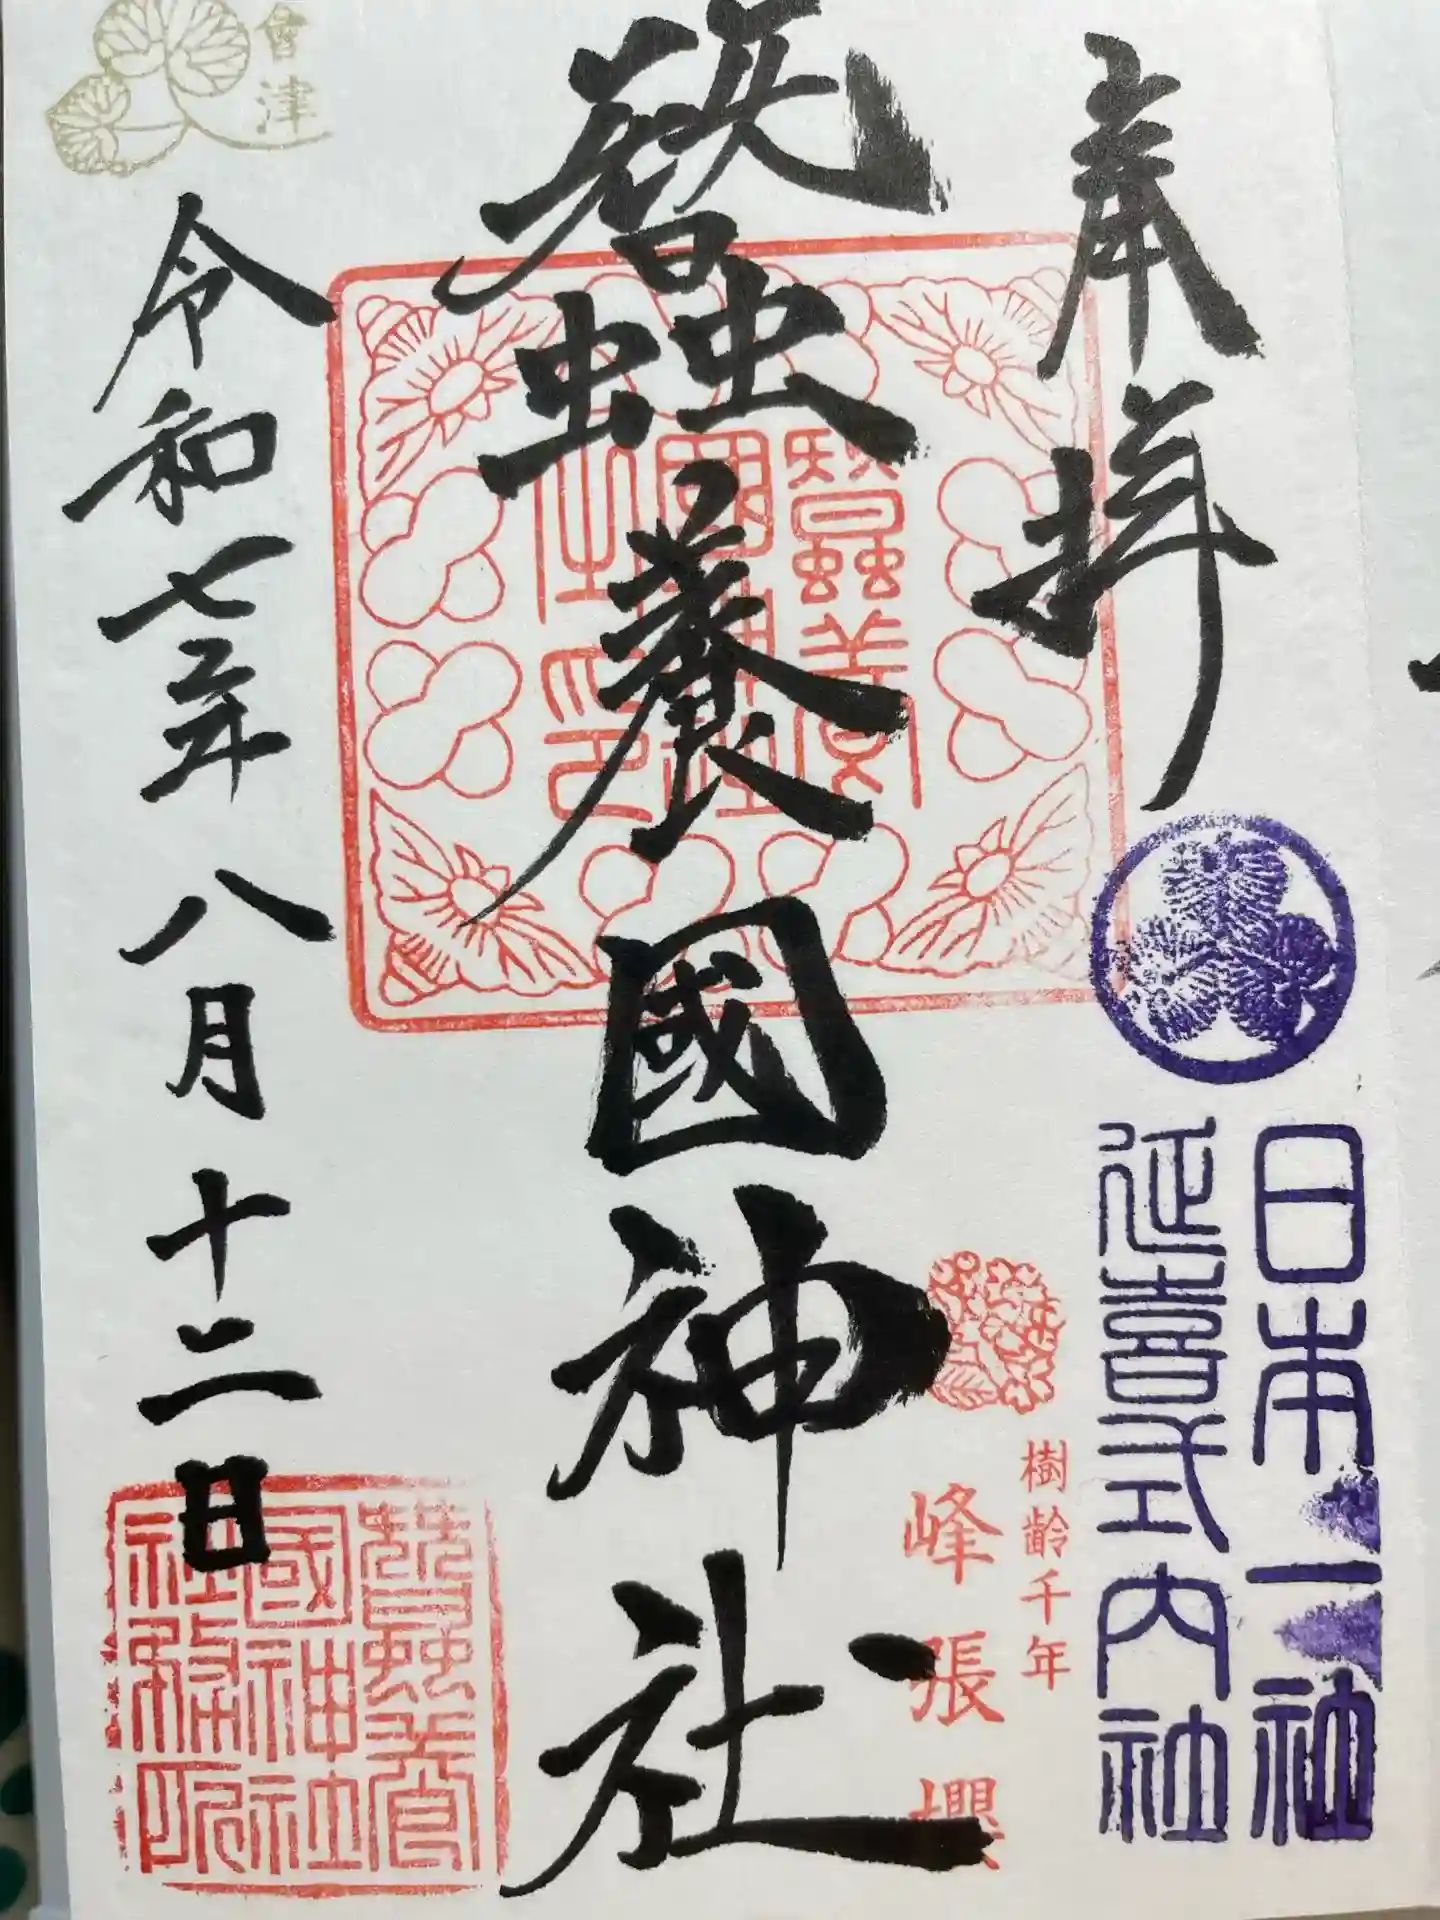 奉拝
日本一社
延喜式内社
樹齢千年
峰張櫻
蠶養國神社
蠶養國神社印
蠶養國神社社務所
會津
令和七年八月十二日